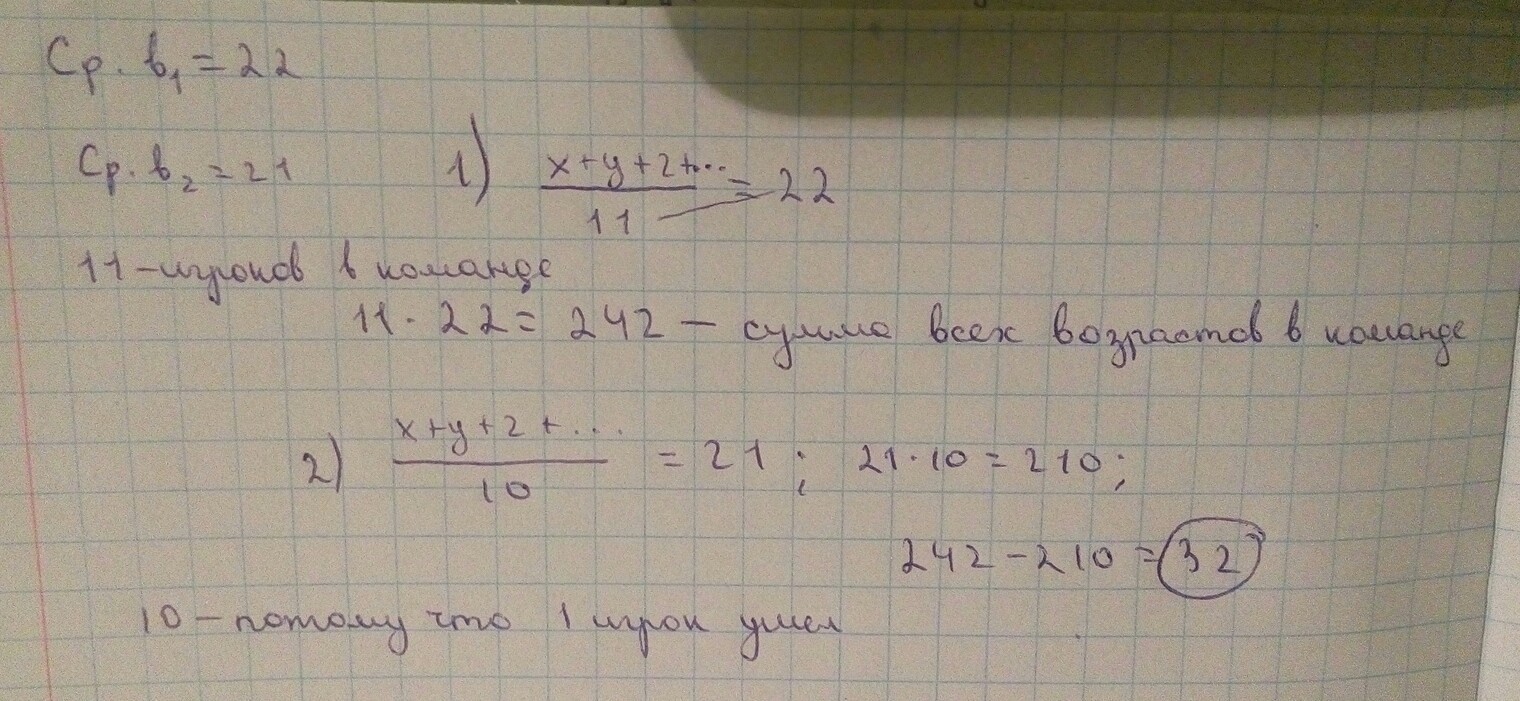 Ср. в₁ = 22
Ср. в₂ = 21
1) (x+y+z+...)/11 = 22
11 - игроков в команде
11 · 22 = 242 - сумма всех возрастов в команде
2) (x+y+z+...)/10 = 21; 21·10 = 210;
242 - 210 = 32
10 - потому что 1 игрок ушел